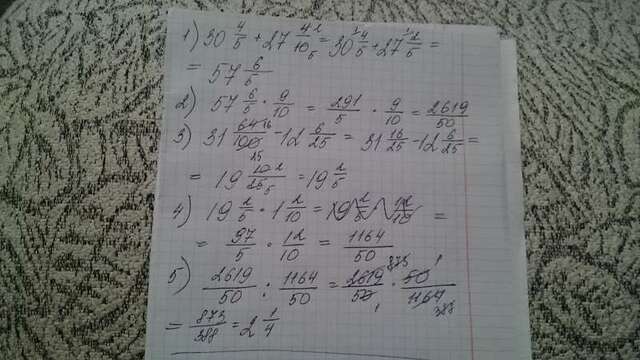 1) 30 4/5 + 27 4/10 = 30 4/5 + 27 2/5 =
= 57 6/5
2) 57 6/5 · 9/10 = 291/5 · 9/10 = 2619/50
3) 31 64/100 - 12 6/25 = 31 16/25 - 12 6/25 =
= 19 10/25 = 19 2/5
4) 19 2/5 · 1 2/10 = 19 2/5 · 12/10 =
= 97/5 · 12/10 = 1164/50
5) 2619/50 : 1164/50 = 2619/50 · 50/1164
= 873/388 = 2 1/4